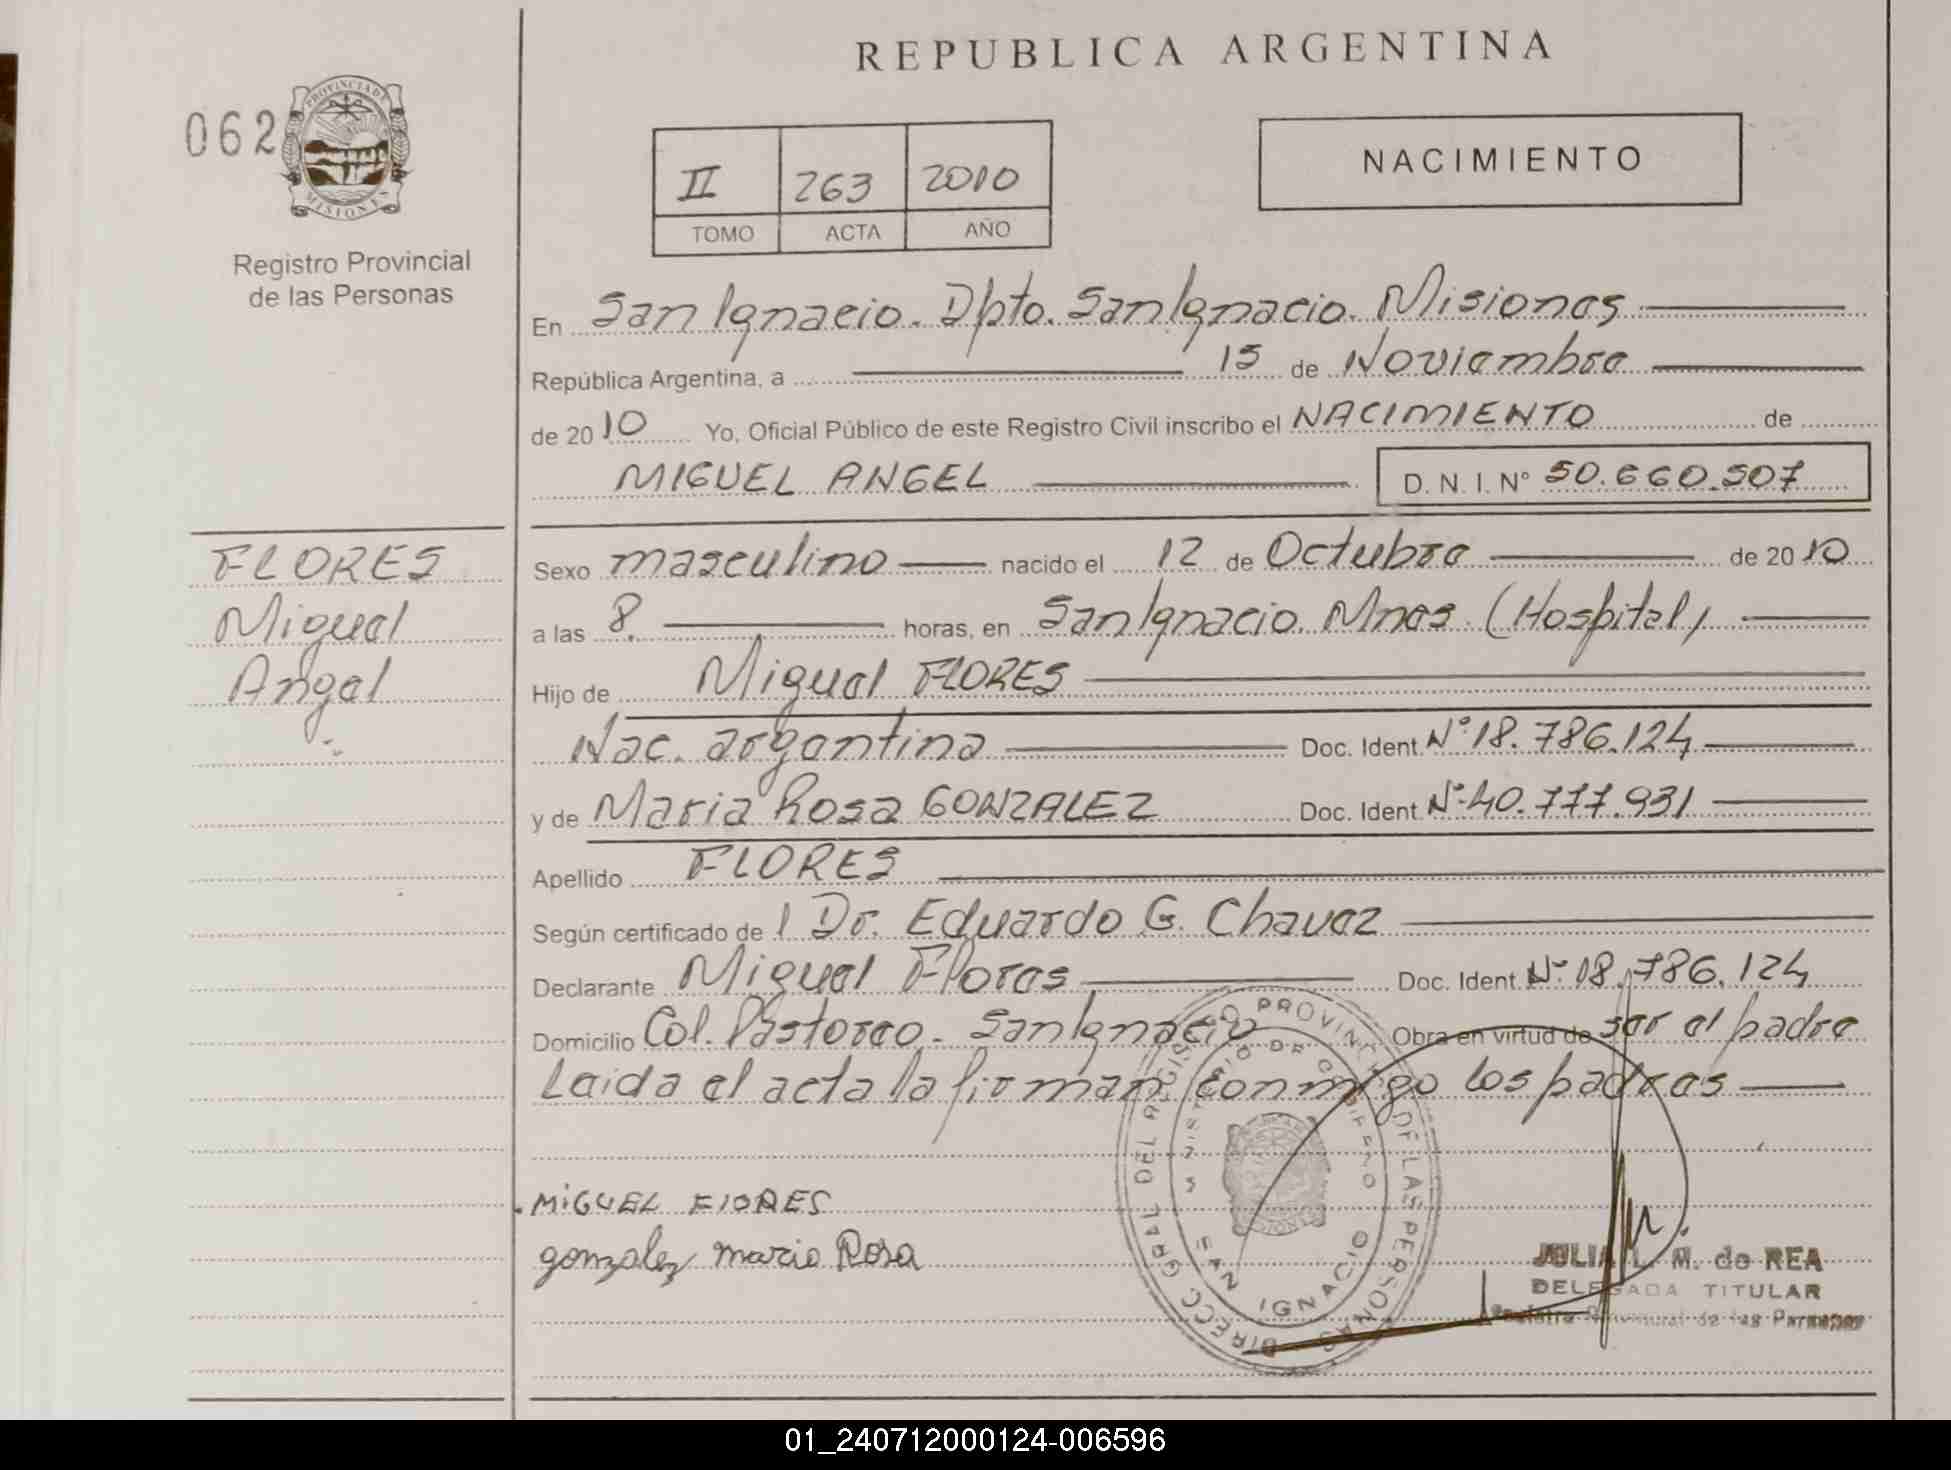 REPUBLICA ARGENTINA
062
PROVINCIA DE MISIONES
Registro Provincial
de las Personas
II 263 2010
TOMO ACTA AÑO
NACIMIENTO
En San Ignacio. Dpto. San Ignacio. Misiones
República Argentina, a 15 de Noviembre
de 2010 Yo, Oficial Público de este Registro Civil inscribo el NACIMIENTO de
MIGUEL ANGEL D. N. I. N° 50.660.507
FLORES
Miguel
Angel
Sexo masculino nacido el 12 de Octubre de 2010
a las 8. horas, en San Ignacio. Mnes. (Hospital)
Hijo de Miguel FLORES
Nac. argentina Doc. Ident. N° 18.786.124
y de Maria Rosa GONZALEZ Doc. Ident. N° 40.777.931
Apellido FLORES
Según certificado de l Dr. Eduardo G. Chavez
Declarante Miguel Flores Doc. Ident. N° 18.786.124
Domicilio Col. Pastoreo - San Ignacio Obra en virtud de ser el padre
Leida el acta la firman conmigo los padres
MiGUEL FlORES
gonzalez maria Rosa
DIRECC. GRAL. DEL REGISTRO PROVINCIAL DE LAS PERSONAS
MINISTERIO DE GOBIERNO
SAN IGNACIO
JULIA L. M. de REA
DELEGADA TITULAR
Registro Provincial de las Personas
01_240712000124-006596